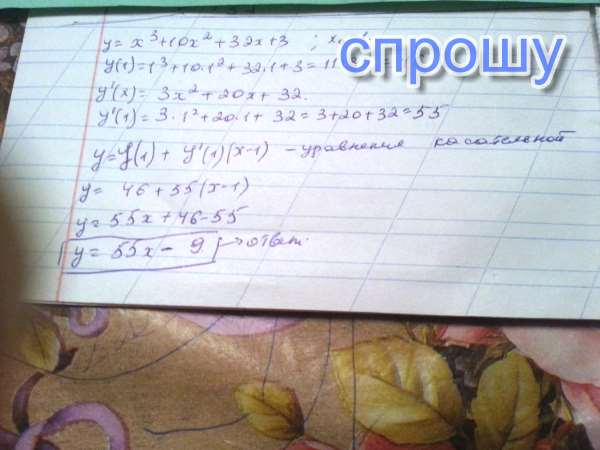 y = x³+10x²+32x+3 ; x
y(1)=1³+10·1²+32·1+3=11
спрошу
y'(x)= 3x²+20x+32.
y'(1)= 3·1²+20·1+32=3+20+32=55
y=y(1)+ y'(1)(x-1) - уравнения касательной
y= 46+55(x-1)
y=55x+46-55
y= 55x- 9 → ответ.